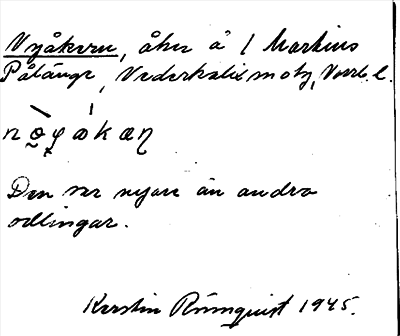 Nyåkern, åker å 1 Markus
Pålänge, Nederkalix m otg, Norrb. l.
Den var nyare än andra
odlingar.
Kerstin Rönnquist 1945.